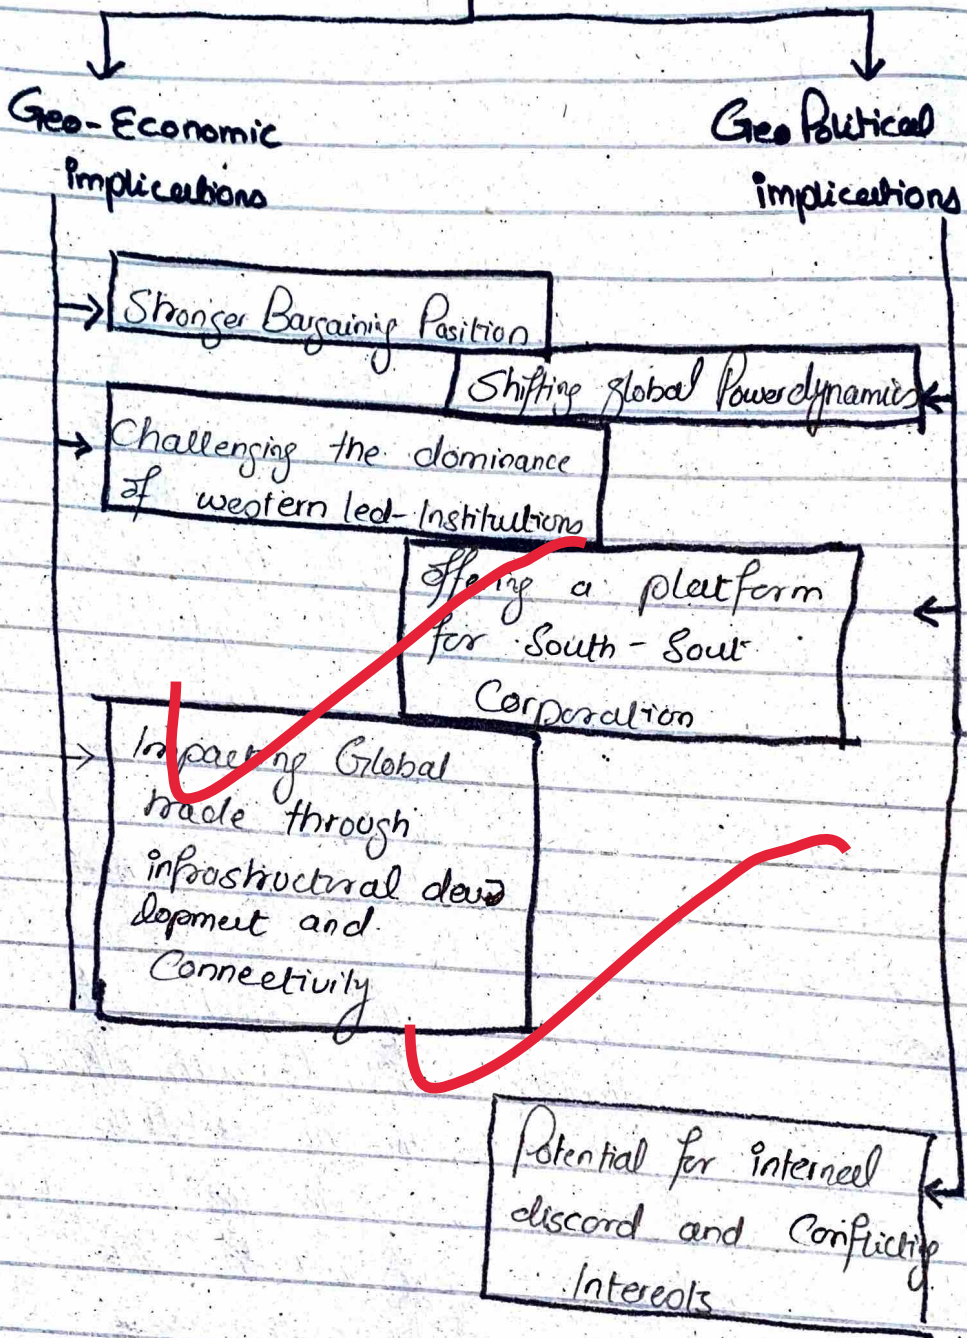 Geo-Economic
implications
Geo Political
implications
Stronger Bargaining Position
Shifting global Powerdynamics
Challenging the dominance
of western led-Institutions
offering a platform
for South-Sout
Corporation
Impacting Global
trade through
infrastructural deve
lopment and
Connectivity
Potential for internal
discord and Conflicting
Interests